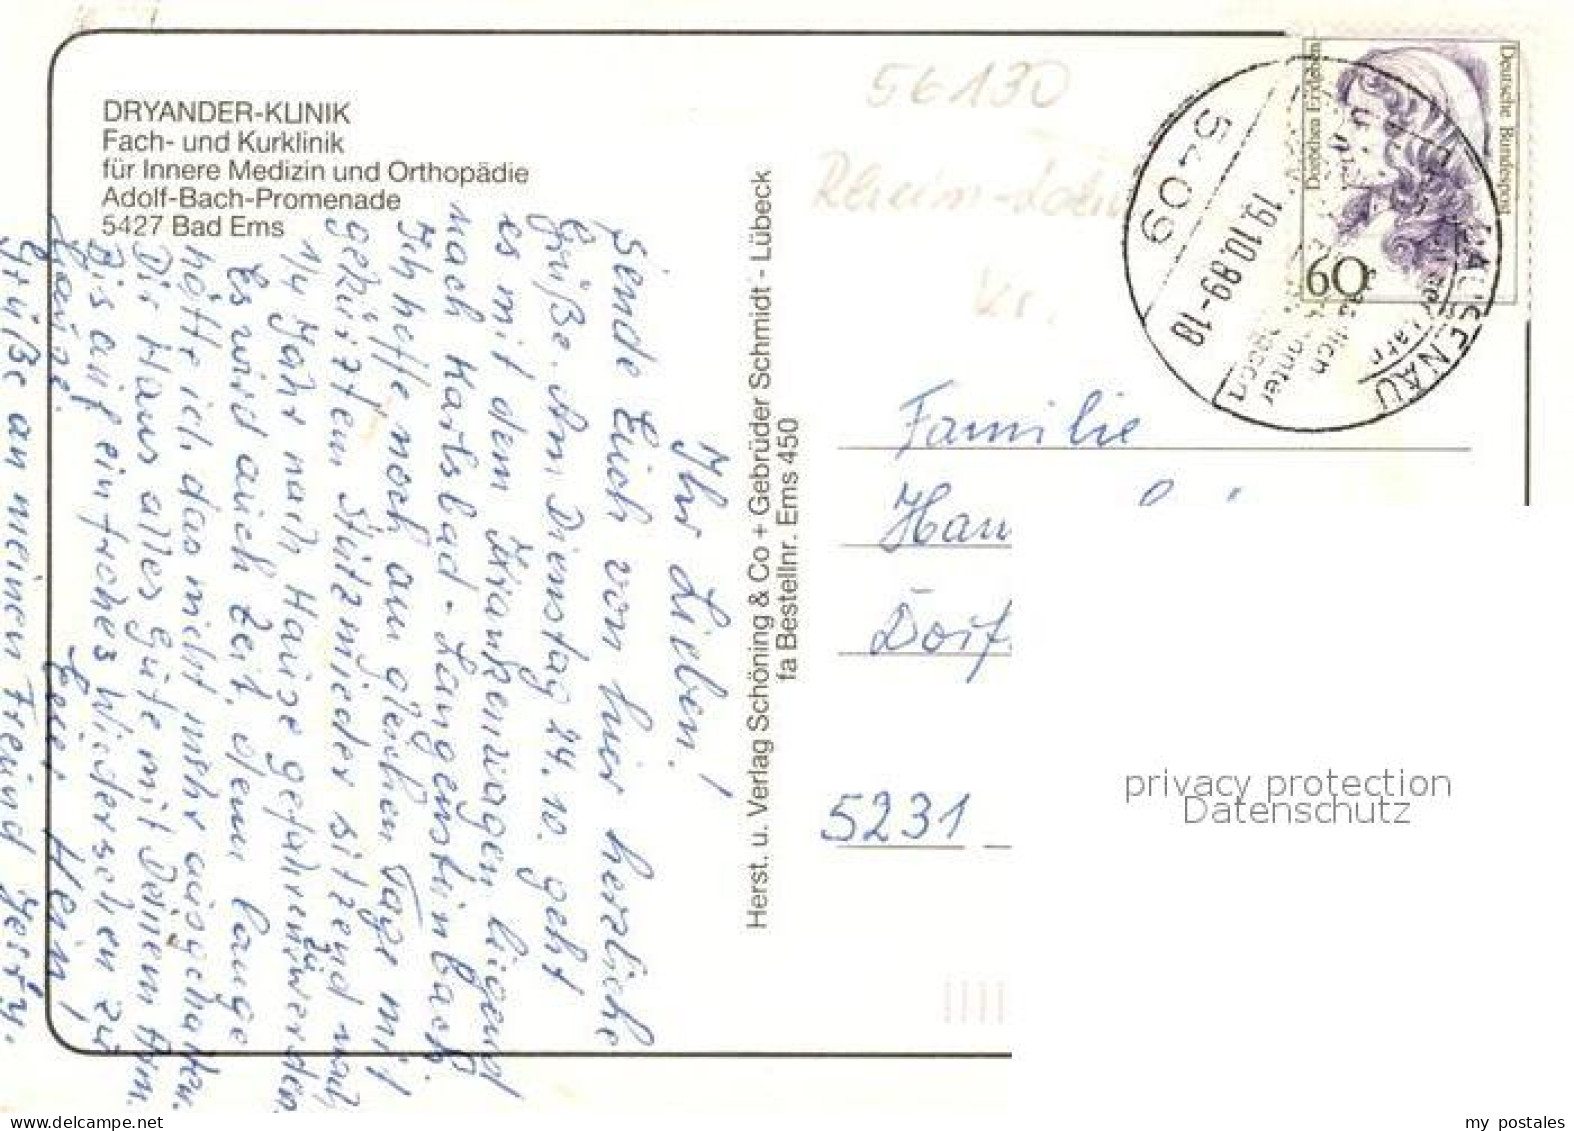 DRYANDER-KLINIK
Fach- und Kurklinik
für Innere Medizin und Orthopädie
Adolf-Bach-Promenade
5427 Bad Ems
Ihr Lieben!
Sende Euch von hier herzliche
Grüße. Am Dienstag 24.10. geht
es mit dem Krankenwagen liegend
nach Karlsbad-Langensteinbach.
Ich hoffe noch am gleichen Tage mit
gekürztem Stützmieder sitzend nach
1/4 Jahr nach Hause gefahren zu werden.
Es wird auch Zeit, denn lange
hätte ich das nicht mehr ausgehalten.
Dir Hans alles Gute mit Deinem Arm.
Bis auf ein frohes Wiedersehen zu
Hause. Euer Hein!
Grüße an meinen Freund
Herst. u. Verlag Schöning & Co + Gebrüder Schmidt - Lübeck
fa Bestellnr. Ems 450
56130
Rhein-Lahn
Kr.
5409
19.10.89-18
LAURENAU
Deutsche Bundespost
Dorothea Erxleben
60
Familie
Han
Dorf
5231
privacy protection
Datenschutz
my postales